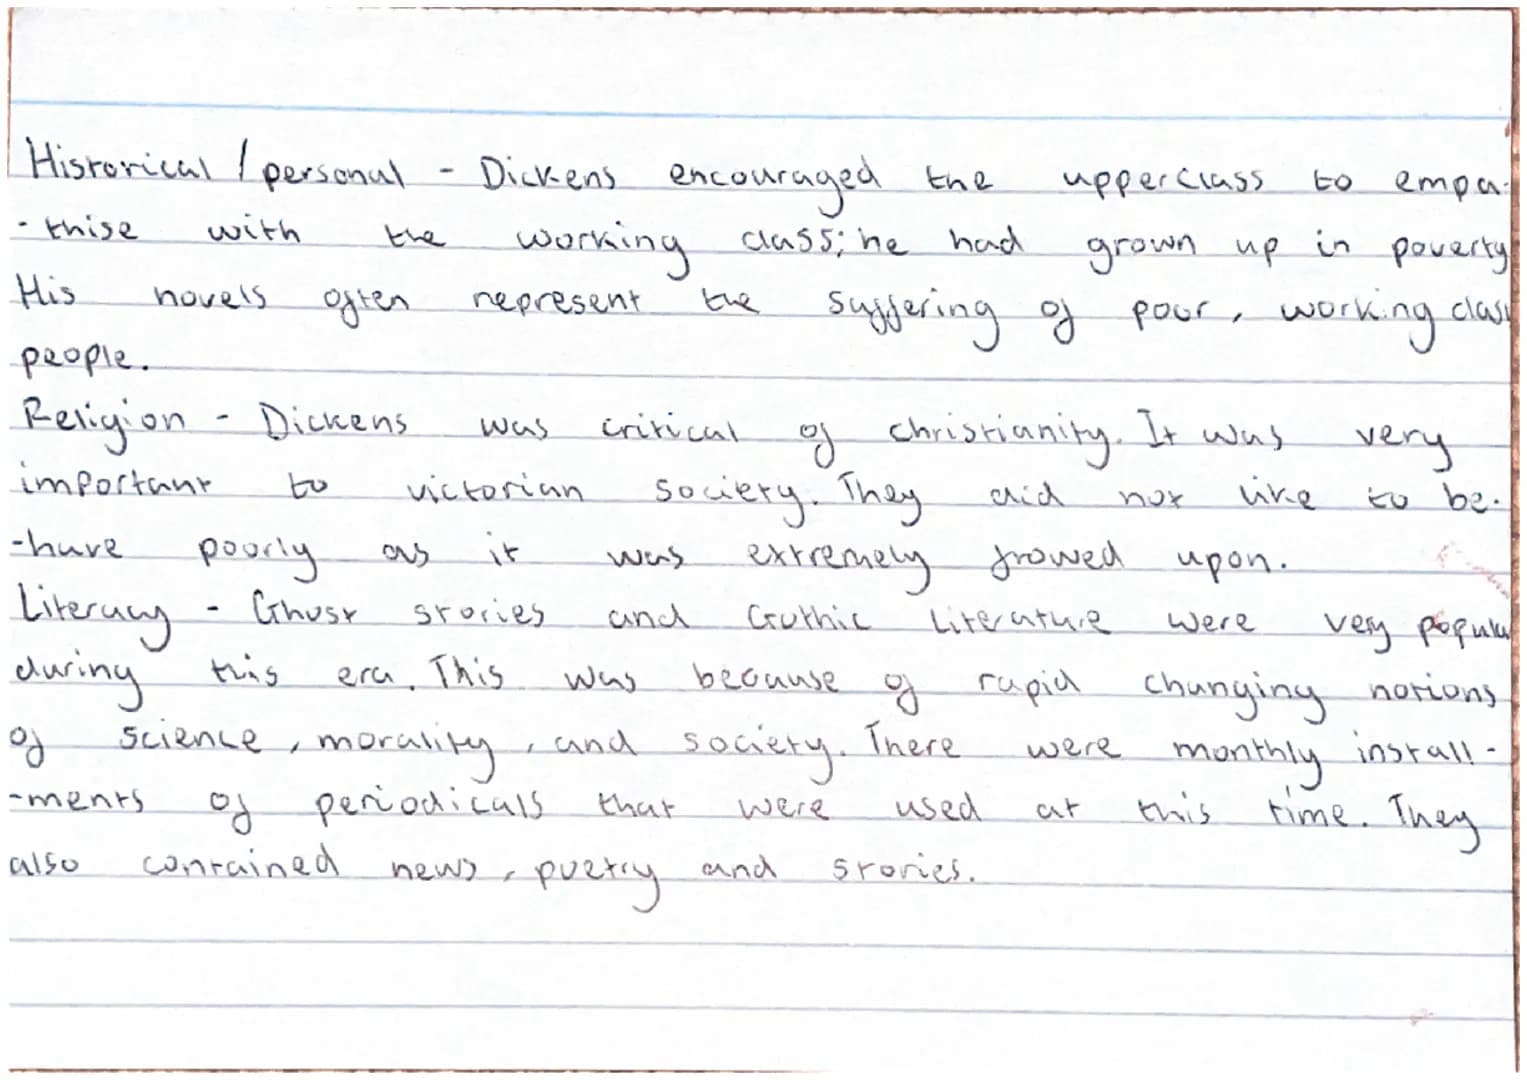 Historical / personal - Dickens encouraged the upperclass to empa-
-thise with the working class; he had grown up in poverty
His novels often represent the suffering of poor, working class
people.
Religion - Dickens was critical of christianity. It was very
important to victorian society. They did not like to be-
-have poorly as it was extremely frowed upon.
Literacy - Ghost stories and Gothic Literature were very popular
during this era. This was because of rapid changing notions
of science, morality, and society. There were monthly install-
-ments of periodicals that were used at this time. They
also contained news, poetry and stories.